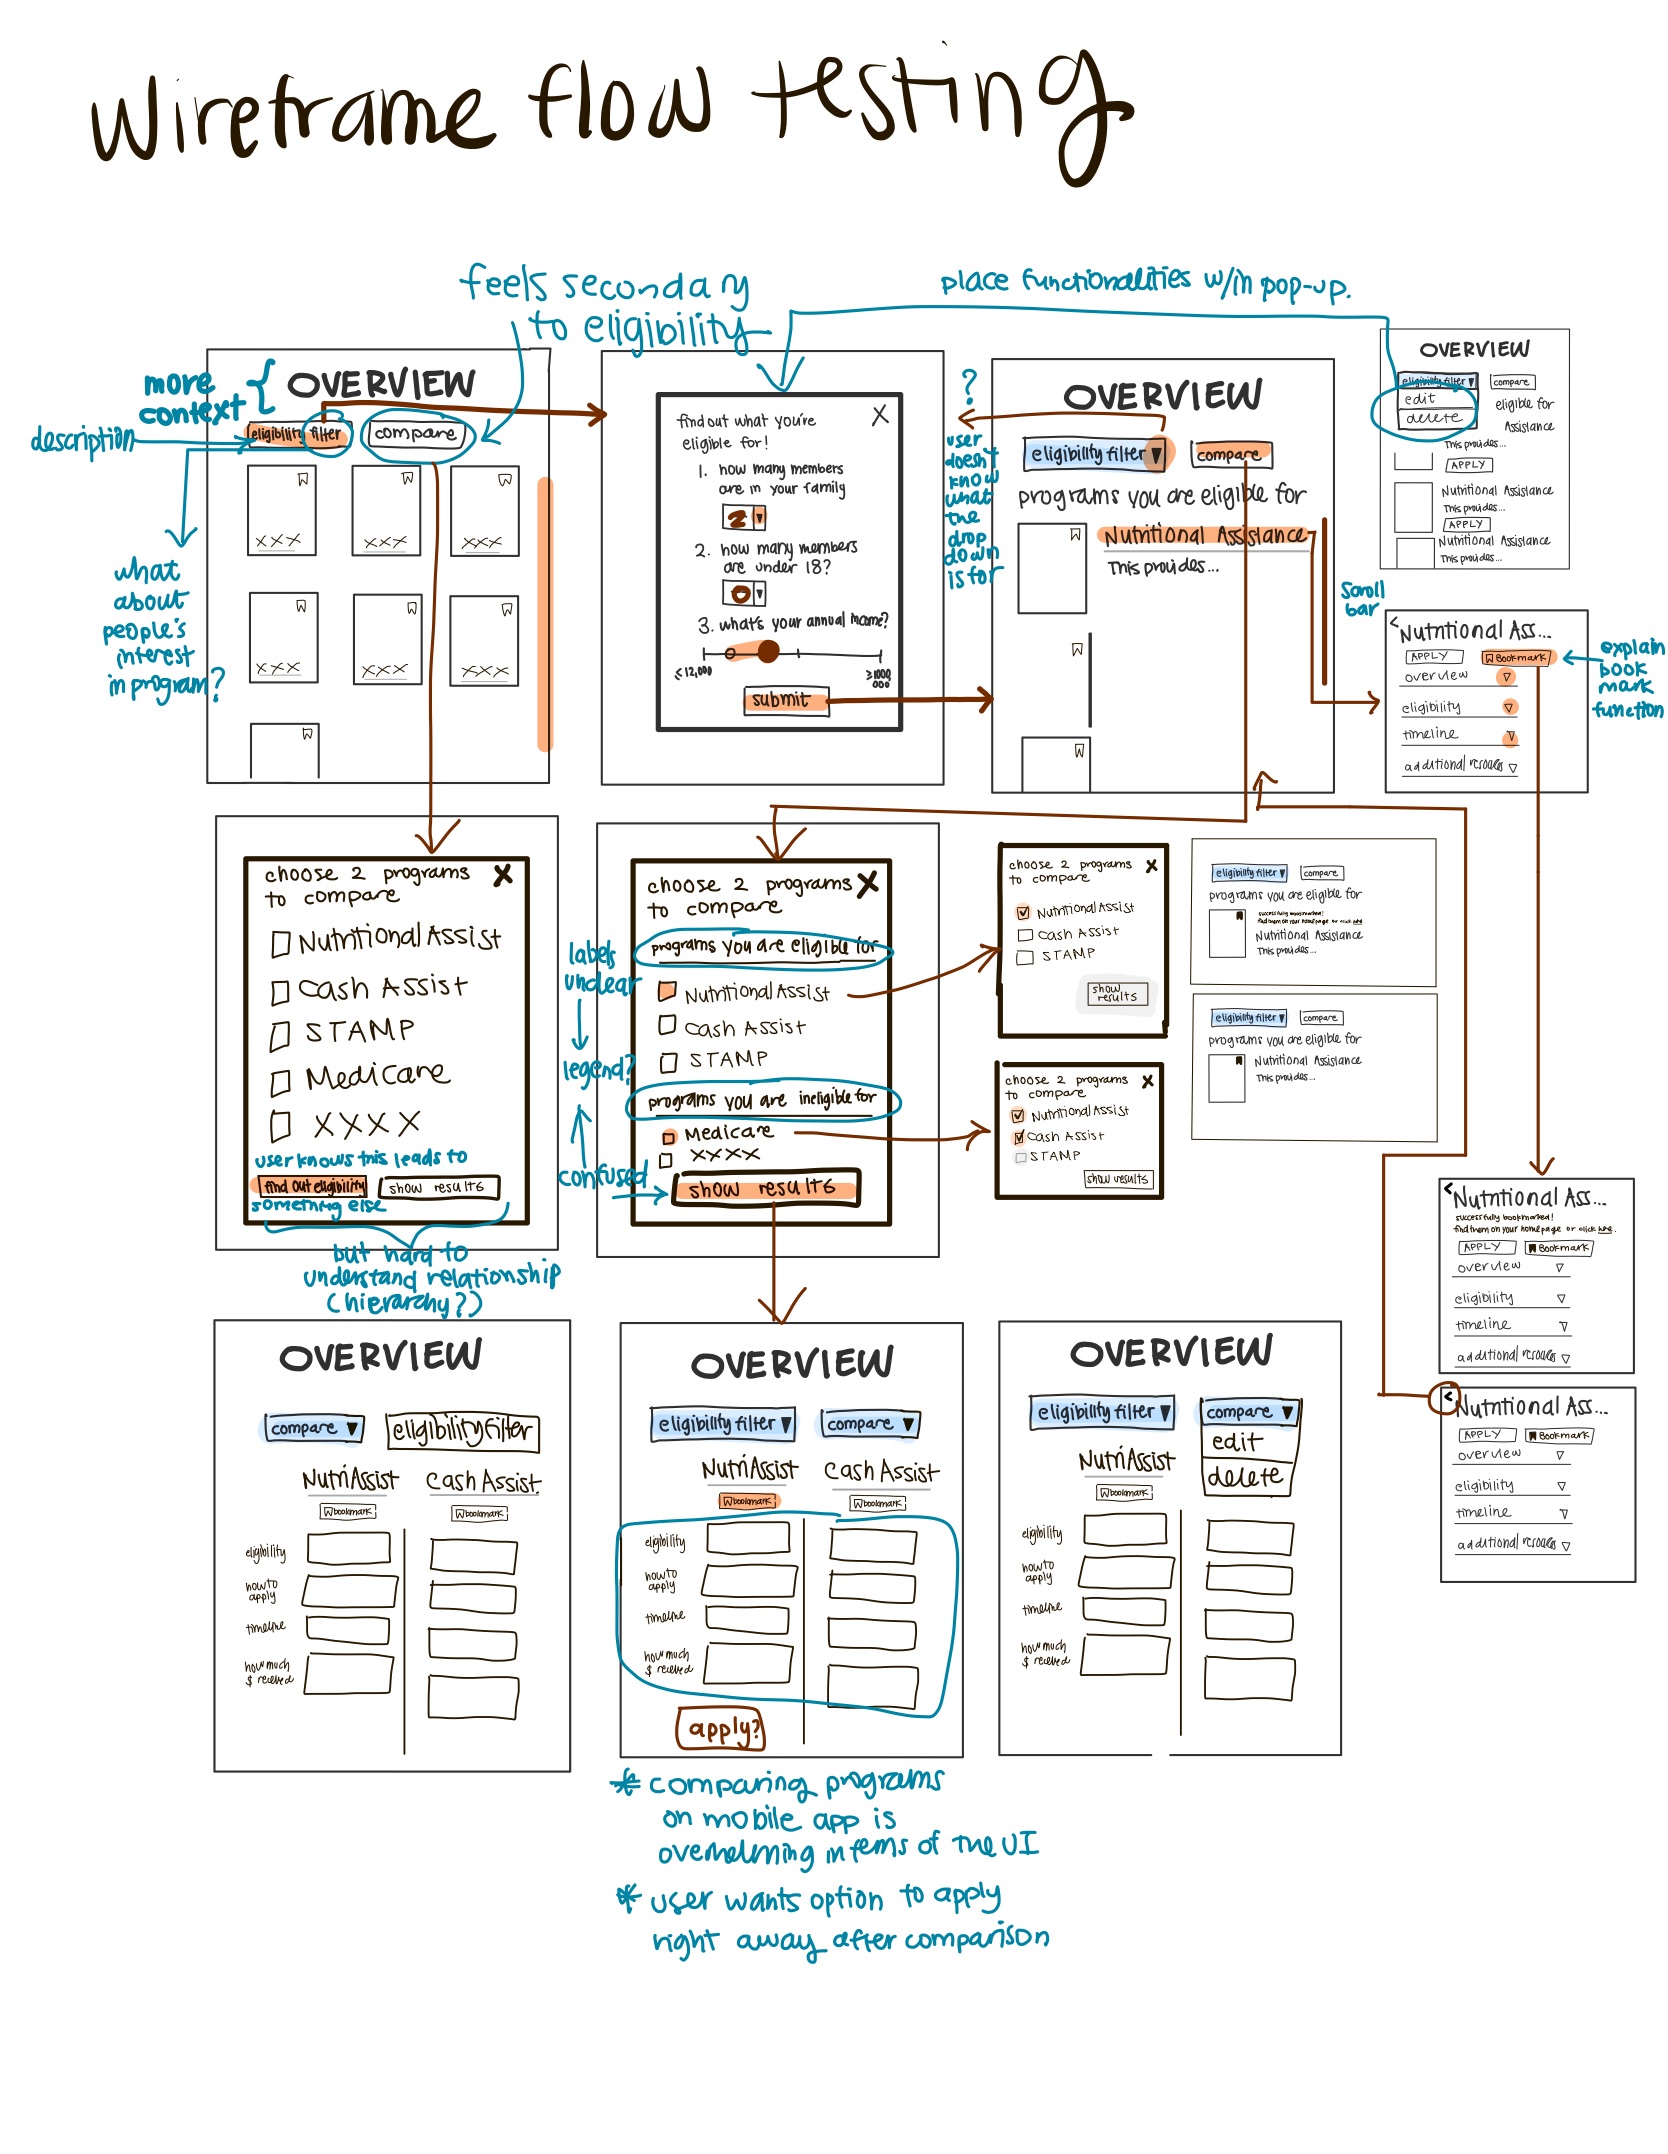 wireframe flow testing
feels seconday
to eligibility
place functionalities w/in pop-up.
more
context {
description
what
about
people's
interest
in program?
OVERVIEW
eligibility filter
compare
XXX
XXX
XXX
XXX
XXX
XXX
find out what you're
eligible for!
X
1. how many members
are in your family
2
2. how many members
are under 18?
0
3. what's your annual income?
≤12,000
≥1000
000
submit
?
user
doesn't
know
what
the
drop
down
is for
OVERVIEW
eligibility filter ▼
compare
programs you are eligible for
Nutritional Assistance
This provides...
OVERVIEW
eligibility filter ▼
compare
edit
delete
eligible for
Assistance
This provides...
APPLY
Nutritional Assistance
This provides...
APPLY
Nutritional Assistance
This provides...
Scroll
bar
< Nutritional Ass...
APPLY
Bookmark
overview
eligibility
timeline
explain
book
mark
function
choose 2 programs
to compare
X
Nutritional Assist
Cash Assist
STAMP
Medicare
XXXX
user knows this leads to
find out eligibility
show results
something else
but hard to
understand relationship
(hierarchy?)
labels
unclear
legend?
confused
choose 2 programs
to compare
X
programs you are eligible for
Nutritional Assist
Cash Assist
STAMP
programs you are ineligible for
Medicare
XXXX
show results
choose 2 programs
to compare
X
Nutritional Assist
Cash Assist
STAMP
show
results
choose 2 programs
to compare
X
Nutritional Assist
Cash Assist
STAMP
show results
eligibility filter ▼
compare
programs you are eligible for
successfully bookmarked!
find them on your homepage or click here
Nutritional Assistance
This provides...
eligibility filter ▼
compare
programs you are eligible for
Nutritional Assistance
This provides...
< Nutritional Ass...
successfully bookmarked!
find them on your homepage or click here.
APPLY
Bookmark
overview
eligibility
timeline
< Nutritional Ass...
APPLY
Bookmark
overview
eligibility
timeline
OVERVIEW
compare ▼
eligibility filter
NutriAssist
Cash Assist
bookmark
bookmark
eligibility
how to
apply
timeline
how much
$ received
OVERVIEW
eligibility filter ▼
compare ▼
NutriAssist
Cash Assist
bookmark
bookmark
eligibility
how to
apply
timeline
how much
$ received
apply?
OVERVIEW
eligibility filter ▼
compare ▼
edit
delete
NutriAssist
bookmark
eligibility
how to
apply
timeline
how much
$ received
* comparing programs
on mobile app is
overwhelming in terms of the UI
* user wants option to apply
right away after comparison